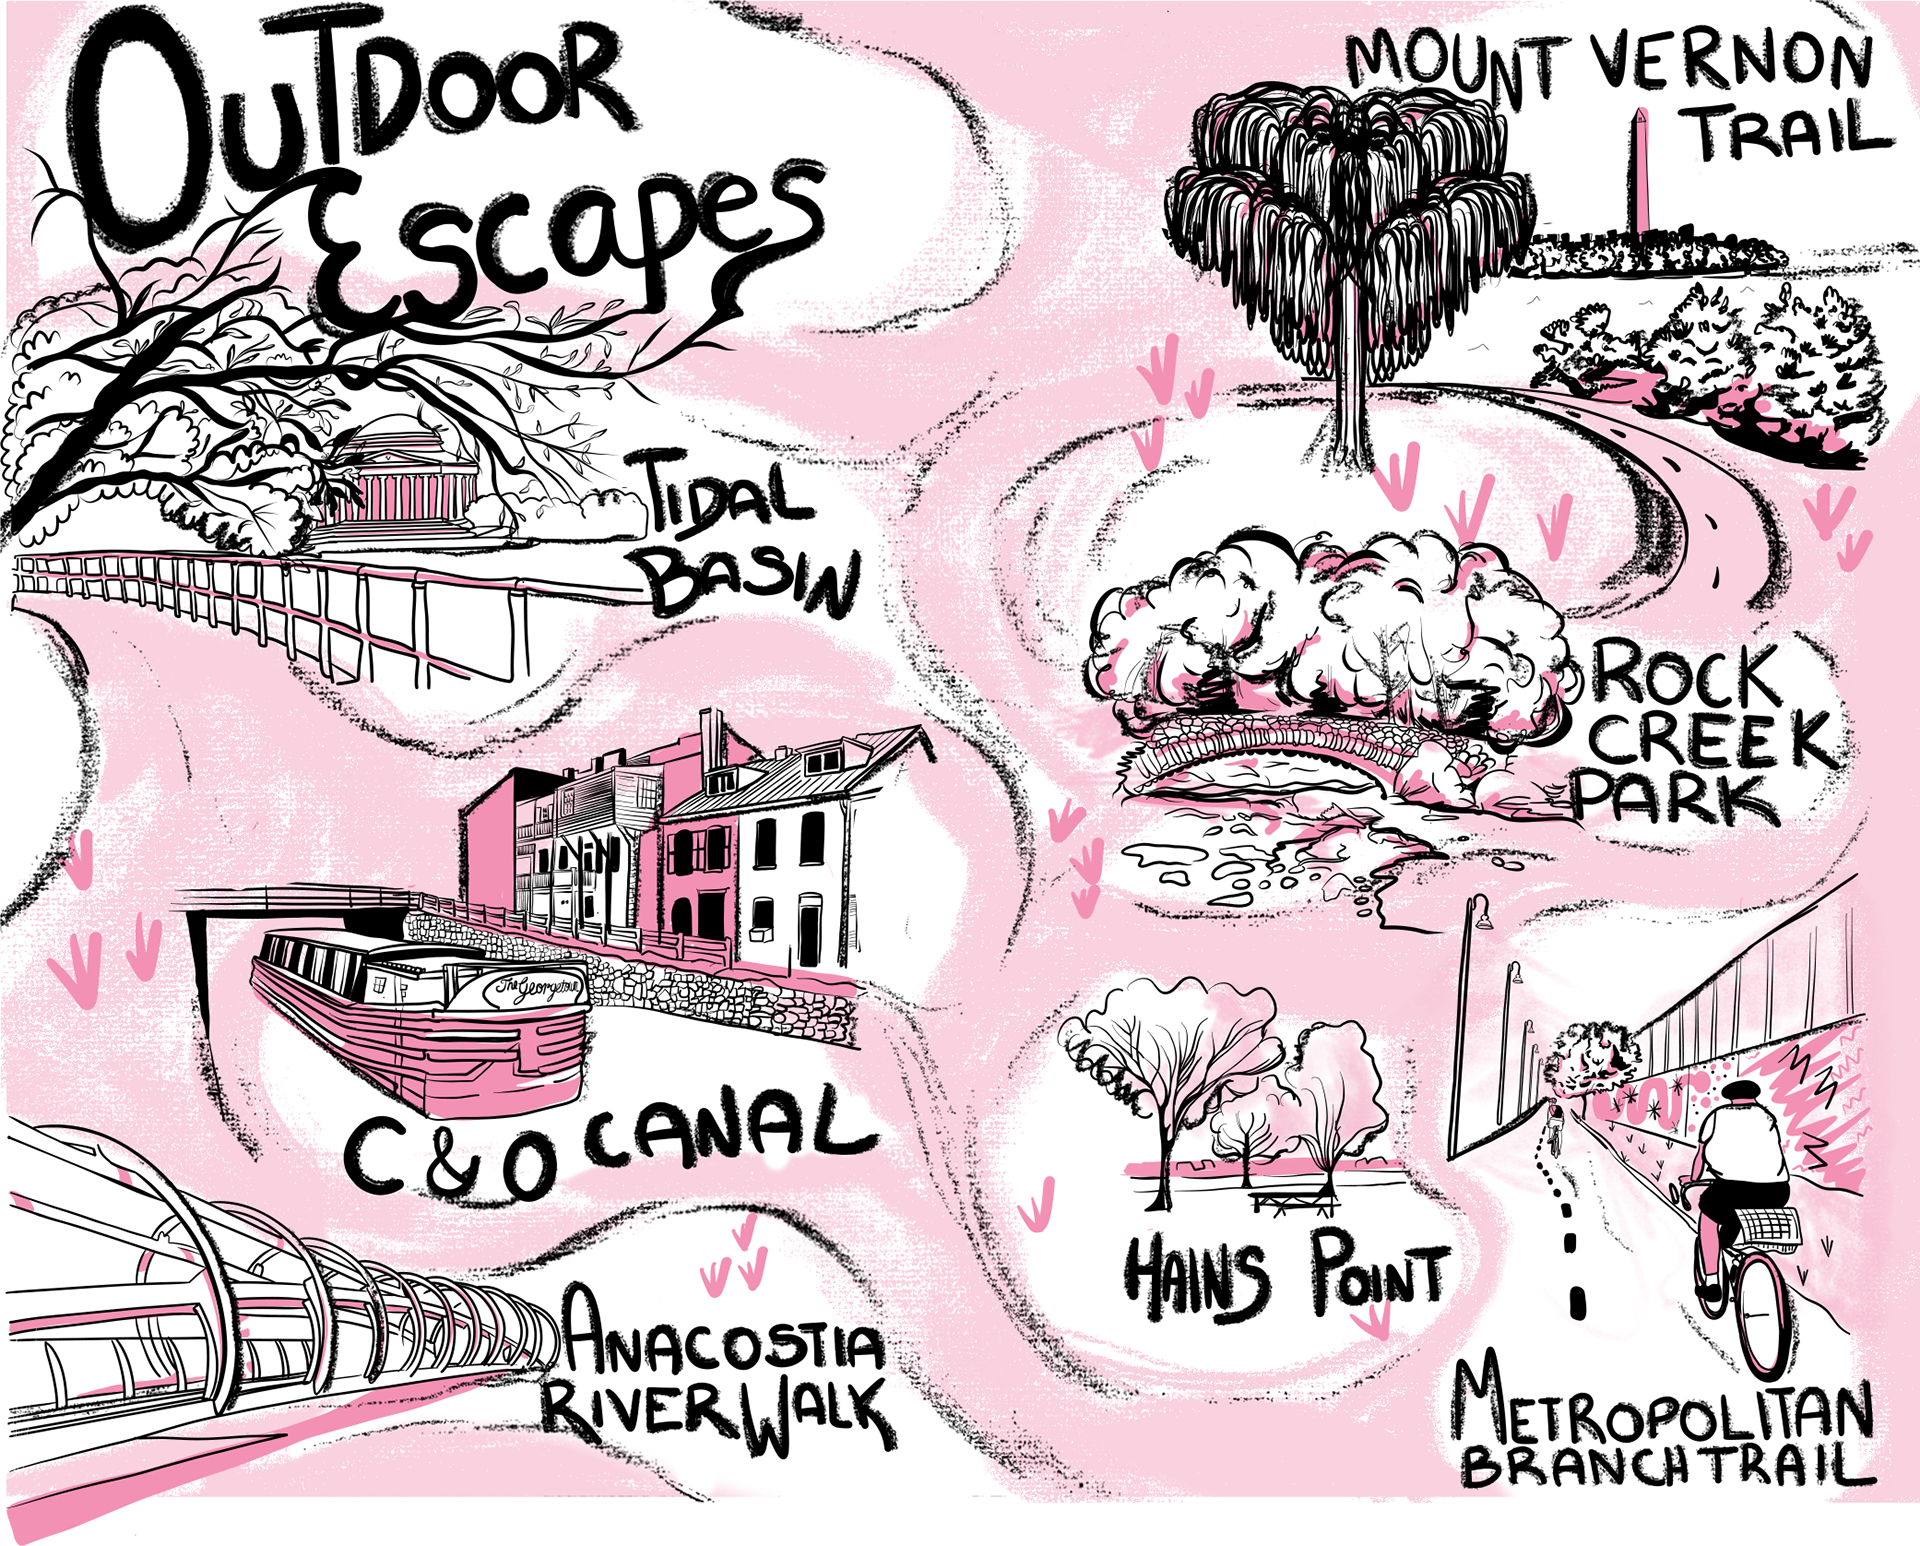 OUTDOOR
ESCAPES
TIDAL
BASIN
C & O CANAL
The Georgetown
ANACOSTIA
RIVERWALK
MOUNT VERNON
TRAIL
ROCK
CREEK
PARK
HAINS POINT
METROPOLITAN
BRANCH TRAIL